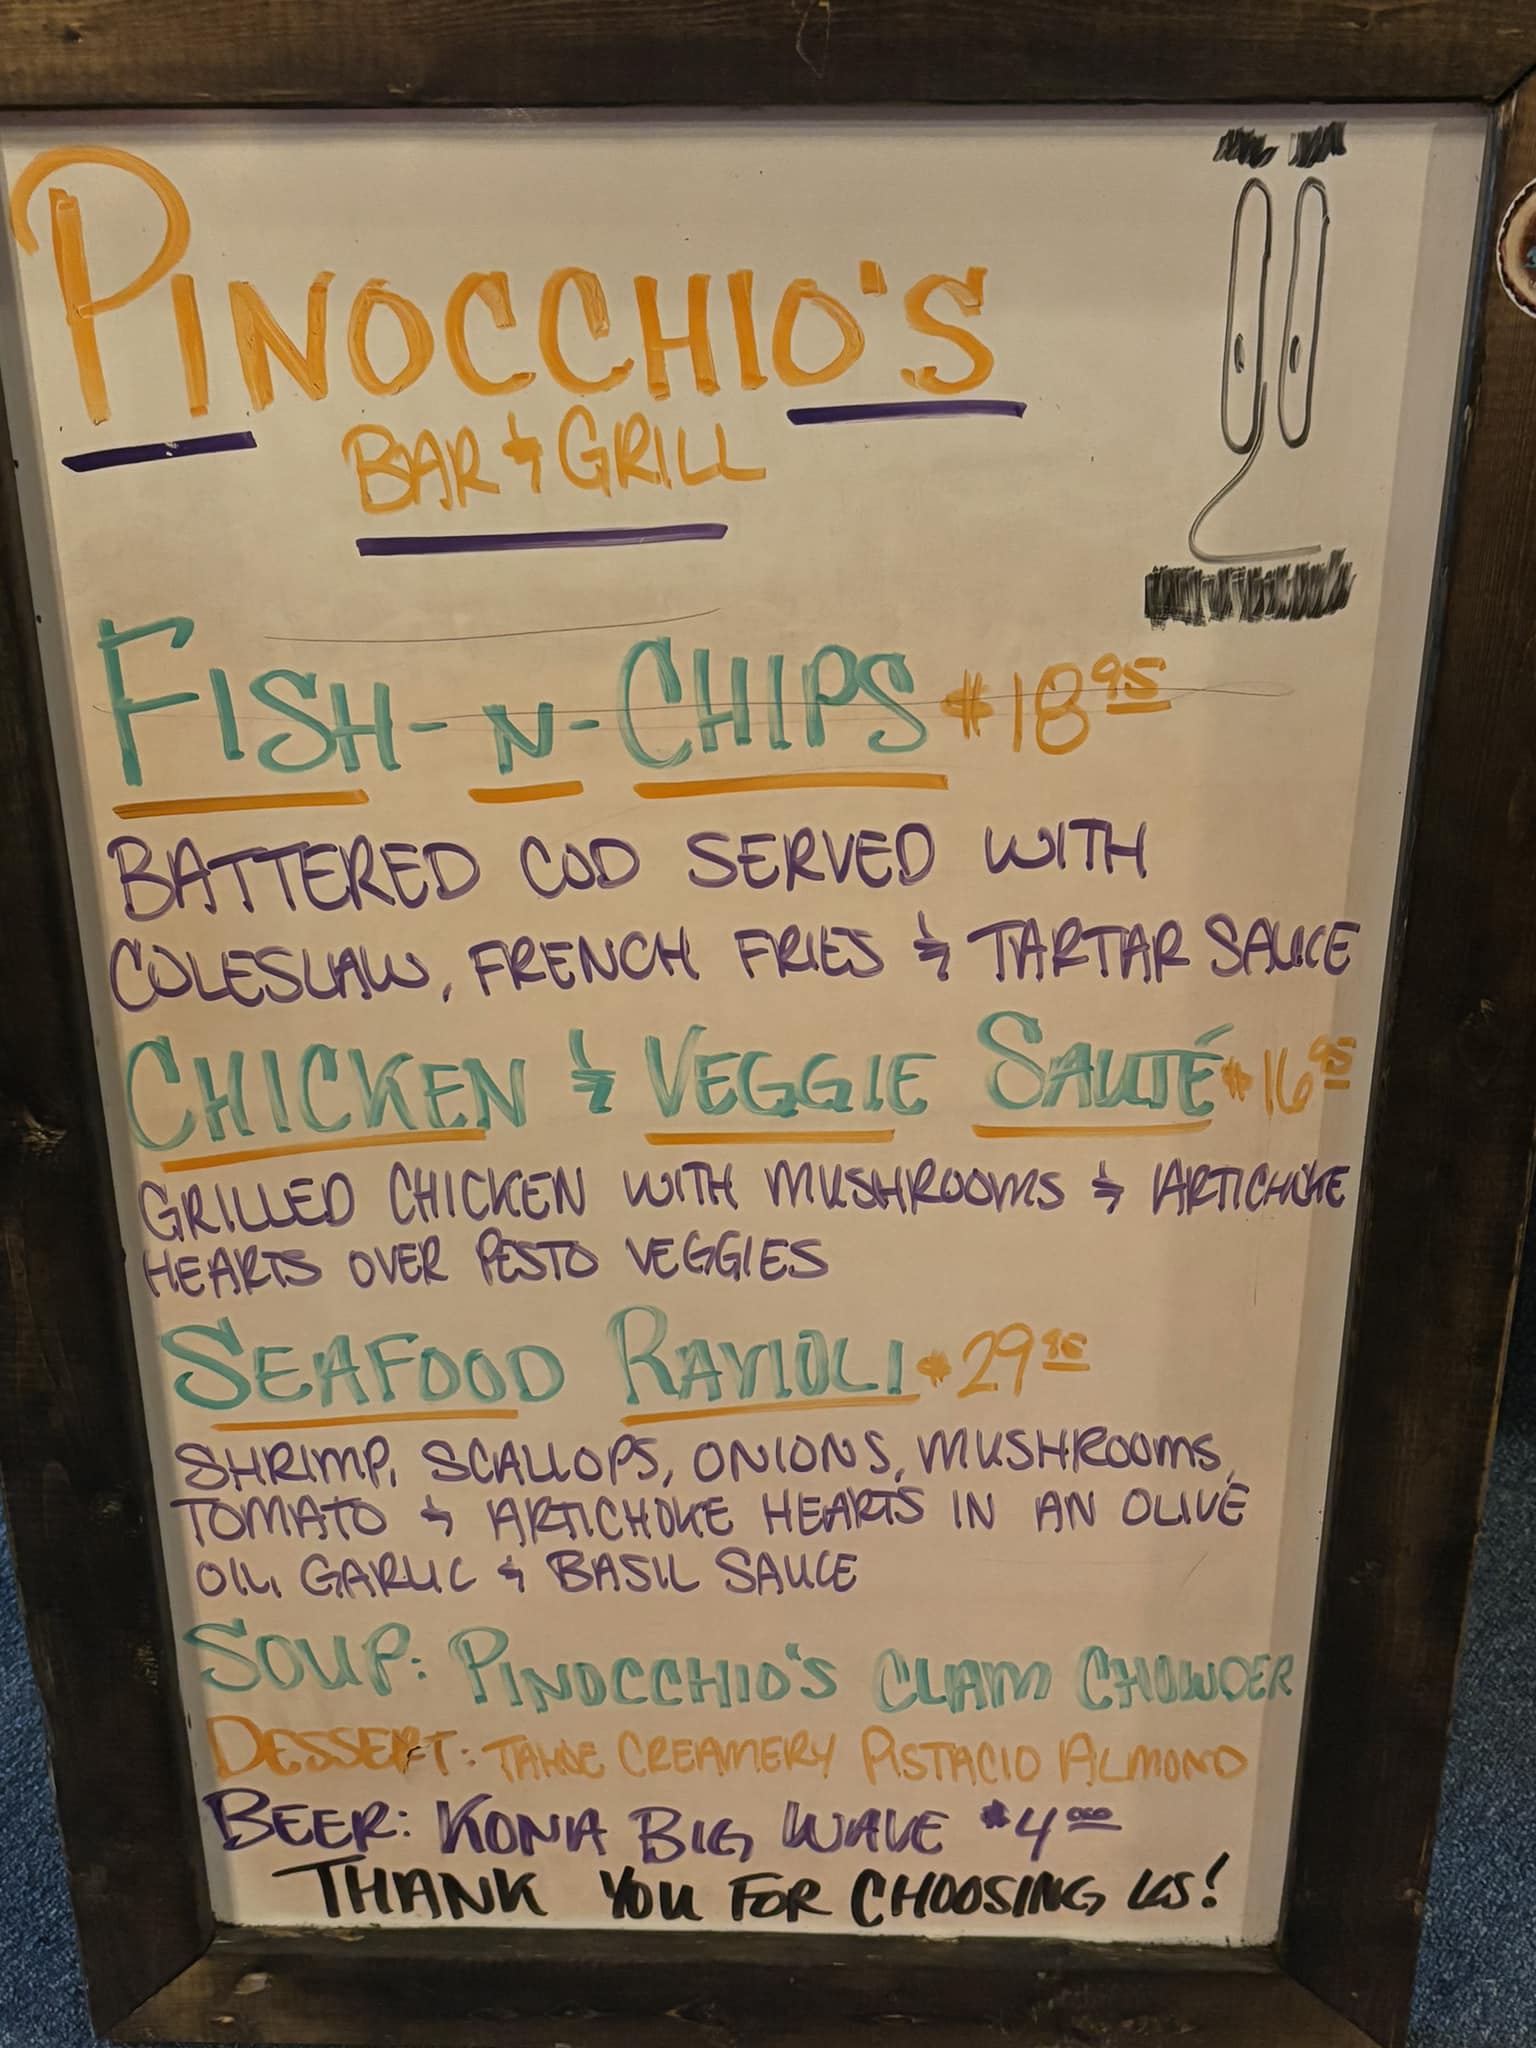 PINOCCHIO'S
BAR & GRILL
FISH-N-CHIPS $18.95
BATTERED COD SERVED WITH
COLESLAW, FRENCH FRIES & TARTAR SAUCE
CHICKEN & VEGGIE SAUTÉ $16.95
GRILLED CHICKEN WITH MUSHROOMS & ARTICHOKE
HEARTS OVER PESTO VEGGIES
SEAFOOD RAVIOLI $29.95
SHRIMP, SCALLOPS, ONIONS, MUSHROOMS,
TOMATO & ARTICHOKE HEARTS IN AN OLIVE
OIL, GARLIC & BASIL SAUCE
SOUP: PINOCCHIO'S CLAM CHOWDER
DESSERT: TAHOE CREAMERY PISTACIO ALMOND
BEER: KONA BIG WAVE $4.00
THANK YOU FOR CHOOSING US!